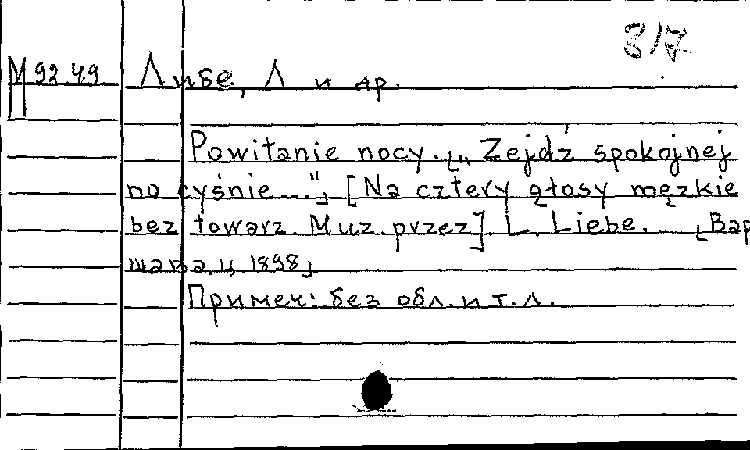 8/7
М 92.49 Либе, Л и др.
Powitanie nocy. [„Zejdź spokojnej
no cyśnie..."] [Na cztery głosy męzkie
bez towarz. Muz. przez] L. Liebe. [Вар
шава, ц. 1898]
Примеч: без обл. и т. л.